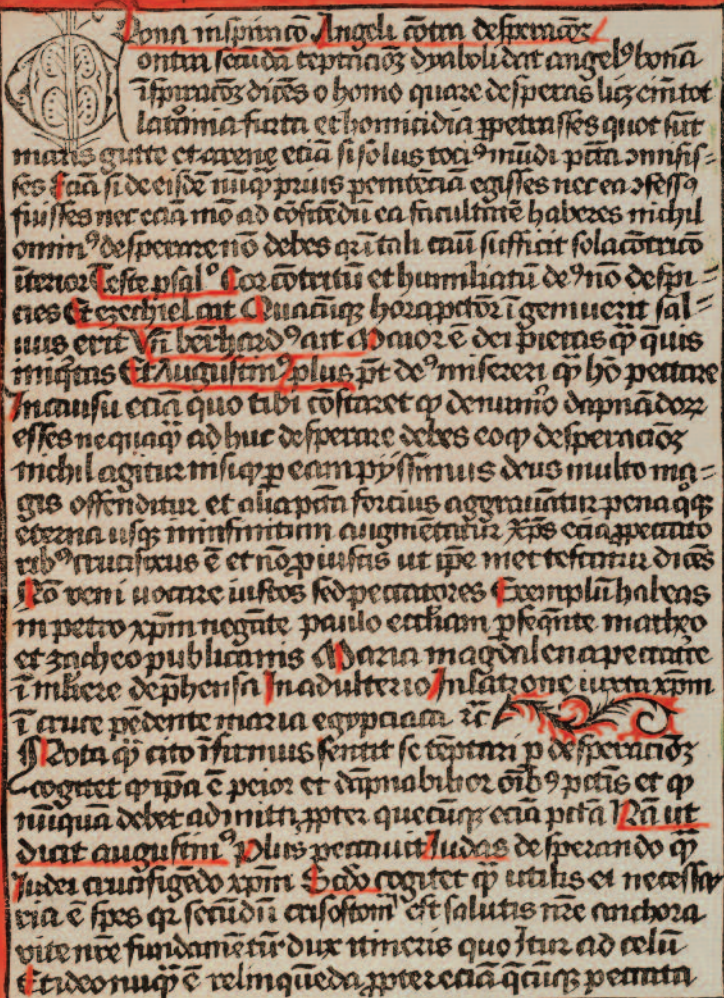 Bona inspiracō Angeli cōtra desperacōꝫ
ontra secūdā tēptaciōꝫ dyaboli dat angelꝰ bonā
īspiracōꝫ dicēs o homo quare desperas licꝫ em̄ tot
latrōinia furta et homicidia ꝑpetrasses quot sūt
maris gutte et arene eciā si solus tociꝰ mūdi pctā ɔmisis⸗
ses Eciā si de eisdē nūqꝫ prius penitēciā egisses nec ea ɔfessꝰ
fuisses nec eciā mō ad cōfitēdū ea facultatē haberes nichil
ominꝰ desperare nō debes qr ī tali casu sufficit sola cōtricō
īterior Teste psalᵒ Cor cōtritū et humiliatū deꝰ nō despi⸗
cies Et ezechiel ait Quacūqꝫ hora pctōr īgemuerit sal⸗
uus erit Vn̄ bern̄hardꝰ ait Maior ē dei pietas qꝫ̄ quis
iniqͥtas Et Augustinꝰ plus pt̄ deꝰ misereri qꝫ̄ hō peccare
In casu eciā quo tibi cōstaret ꝙ de nūero dāpnādorꝝ
esses nequaqꝫ̄ adhuc desperare debes eo ꝙ desperaciōꝫ
nichil agitur nisi ꝙ ꝑ eam pyissimus deus multo ma⸗
gis offenditur et alia pctā forcius aggrauātur pena qͦqꝫ
eterna usqꝫ in infinitum augmētatur Xp̄s eciā ꝓ peccato
ribꝰ crucifixus ē et nō ꝓ iustis ut ip̄e met testatur dicēs
Nō veni uocare iustos sed peccatores Exemplū habeas
in petro xp̄m negāte paulo eccl̄iam ꝑseqͣnte matheo
et zacheo publicanis Maria magdalena peccatͥce
ī mliere dep̄hensa In adulterio In latrone iuxta xp̄m
ī cruce pēdente maria egypciaca ⁊c̄
Nota qꝫ̄ cito īfirmus sentit se tēptari ꝑ desperaciōꝫ
cogitet ꝙ ip̄a ē peior et dāpnabilior oībꝰ pctīs et ꝙ
nūquā debet admitti ꝓpter quecūqꝫ eciā pctā Nā ut
dicit augustinꝰ Plus peccauit Judas desperando qꝫ̄
Judei crucifigēdo xp̄m Scd̄o cogitet qꝫ̄ utilis et necessa
ria ē spes qr secūdū crisostomᵘ est salutis nr̄e anchora
vite nr̄e fundamētū dux itineris quo itur ad celū
Et ideo nūqꝫ̄ ē relinquēda ꝓpter eciā qͣcūqꝫ peccata